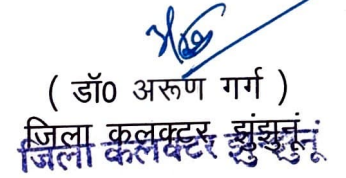 ( डॉ0 अरूण गर्ग )
जिला कलक्टर झुंझुनूं
जिला कलक्टर झुंझुनूं